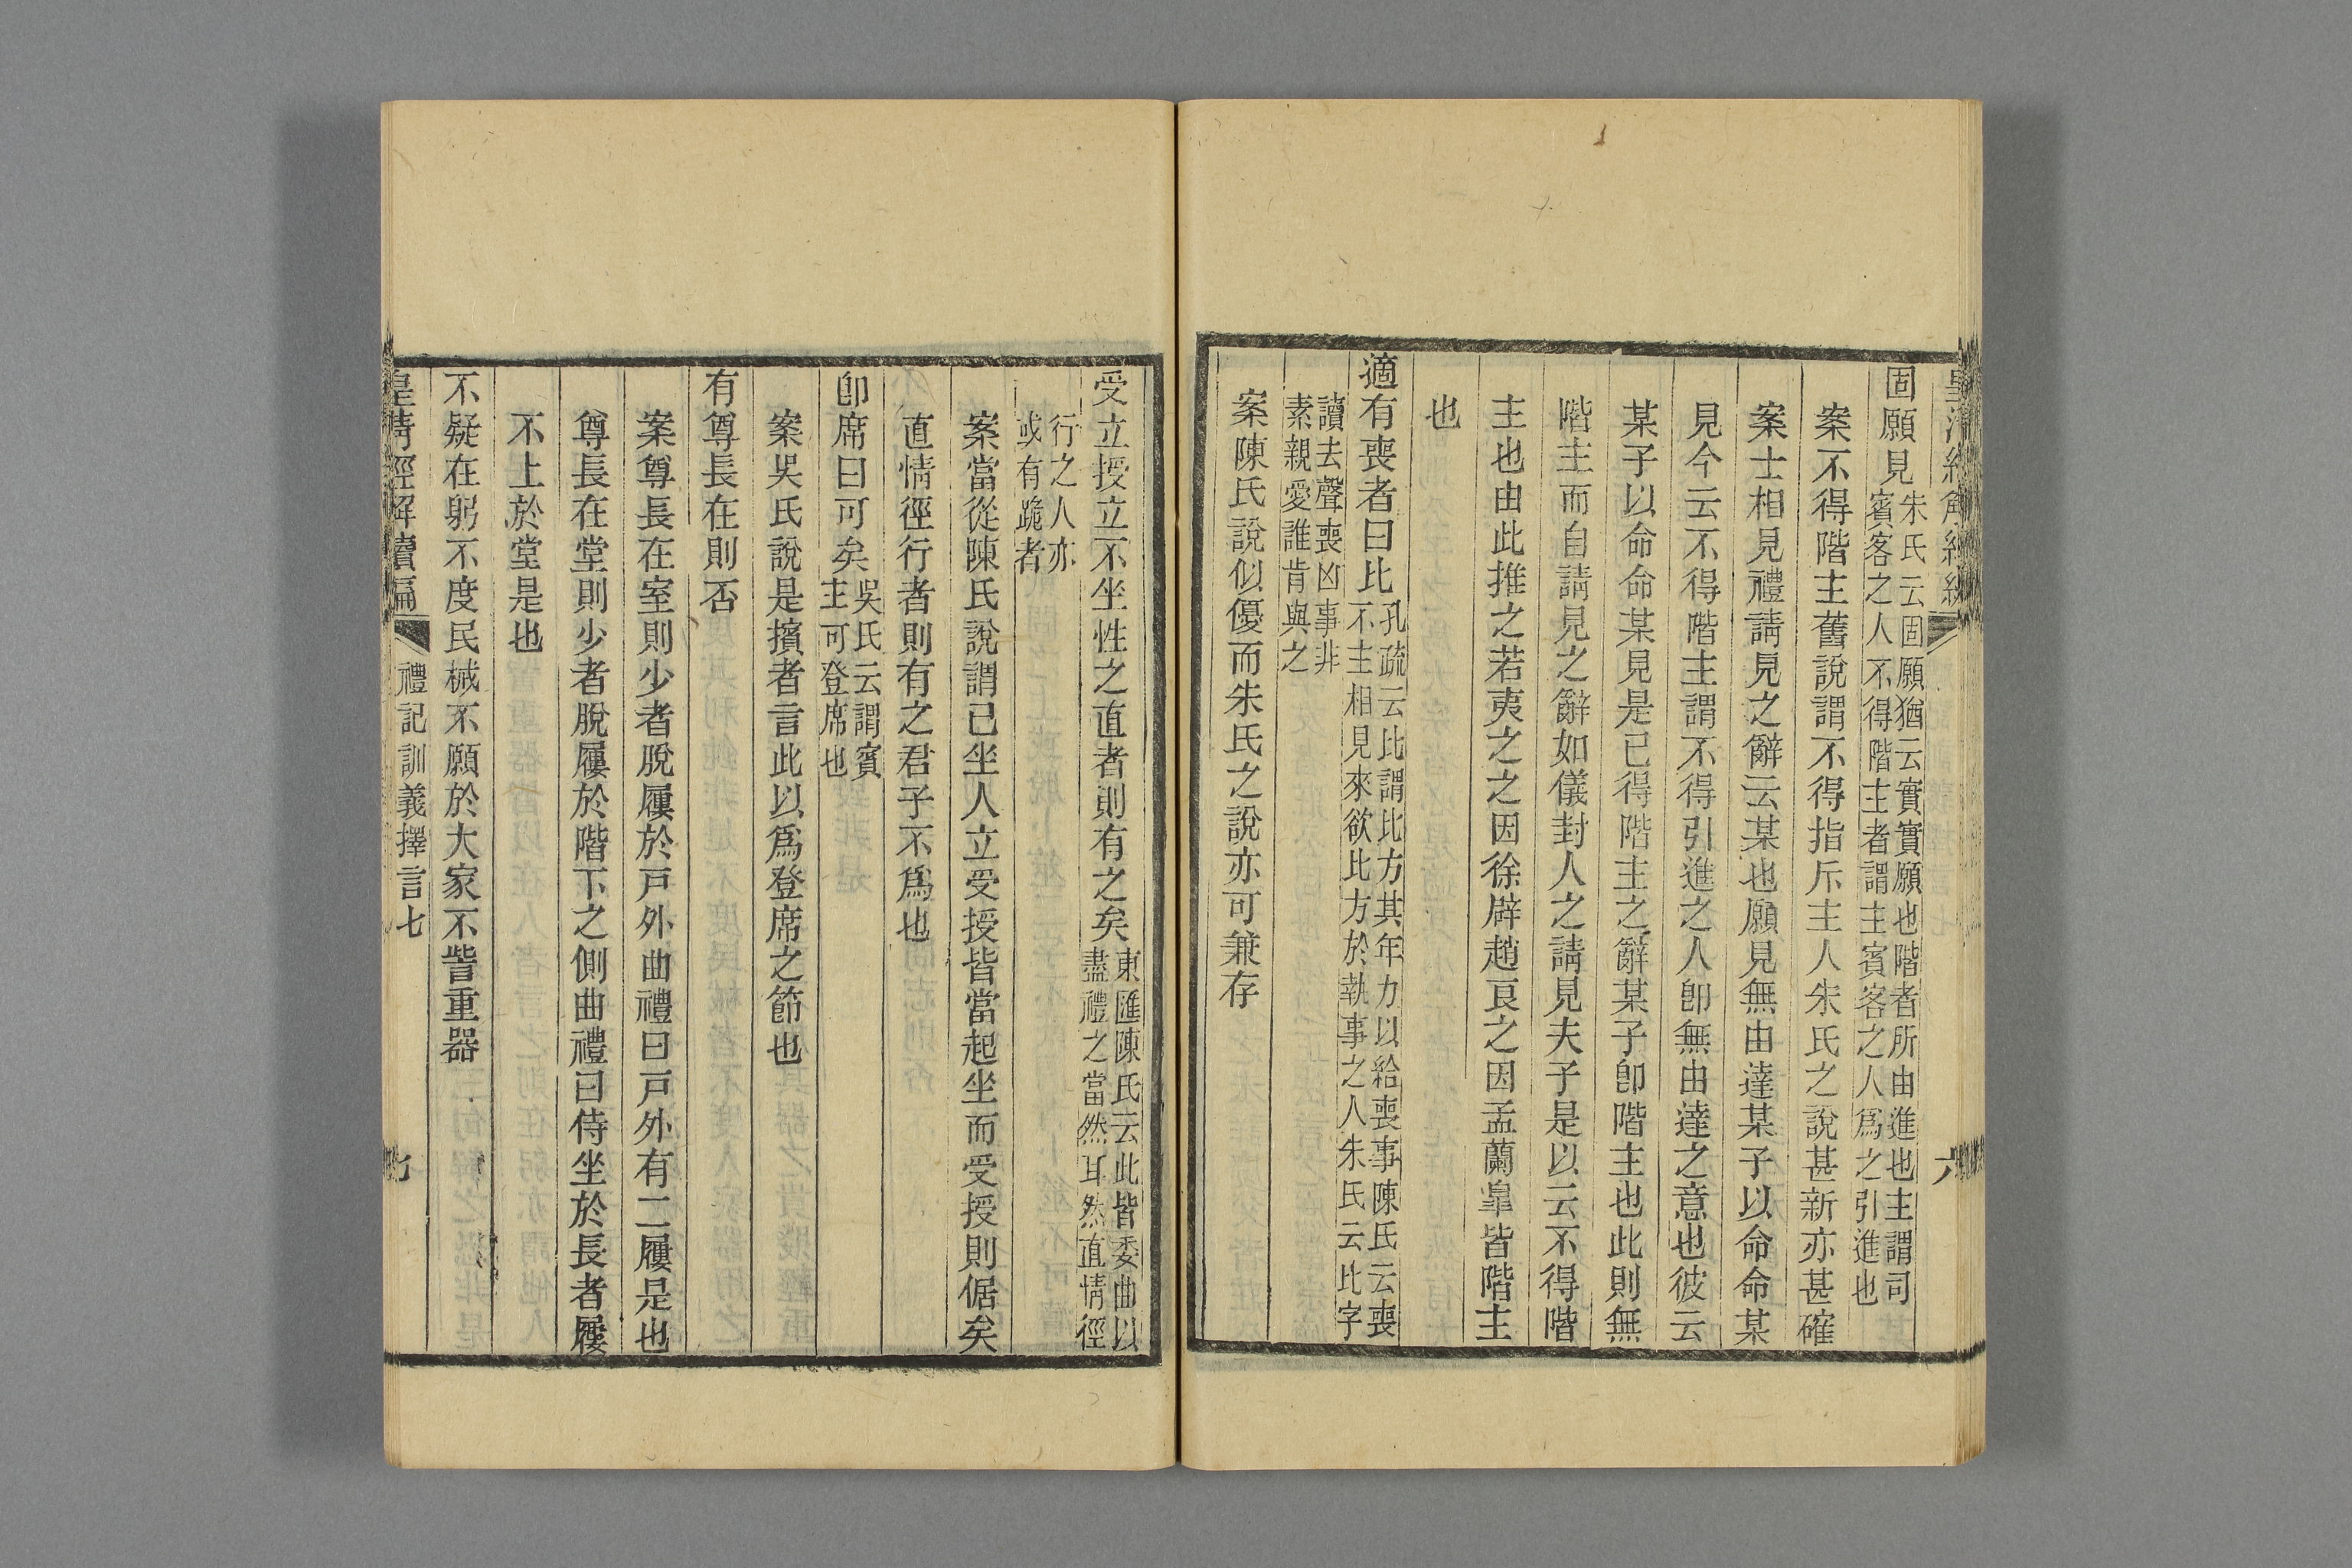 固願見朱氏云固願猶云實實願也階者所由進也主謂司
賓客之人不得階主者謂主賓客之人爲之引進也
案不得階主舊說謂不得指斥主人朱氏之說甚新亦甚確
案士相見禮請見之辭云某也願見無由達某子以命命某
見今云不得階主謂不得引進之人卽無由達之意也彼云
某子以命命某見是已得階主之辭某子卽階主也此則無
階主而自請見之辭如儀封人之請見夫子是以云不得階
主也由此推之若夷之之因徐辟趙良之因孟蘭皐皆階主
也
適有喪者曰比孔疏云比謂比方其年力以給喪事陳氏云喪
不主相見來欲比方於執事之人朱氏云比字
讀去聲喪凶事非
素親愛誰肯與之
案陳氏說似優而朱氏之說亦可兼存
六
受立授立不坐性之直者則有之矣東匯陳氏云此皆委曲以
盡禮之當然耳然直情徑
行之人亦
或有跪者
案當從陳氏說謂已坐人立受授皆當起坐而受授則倨矣
直情徑行者則有之君子不爲也
卽席曰可矣吳氏云謂賓
主可登席也
案吳氏說是擯者言此以爲登席之節也
有尊長在則否
案尊長在室則少者脫屨於戸外曲禮曰戸外有二屨是也
尊長在堂則少者脫屨於階下之側曲禮曰侍坐於長者屨
不上於堂是也
不疑在躬不度民械不願於大家不訾重器
皇淸經解續編
禮記訓義擇言七
七